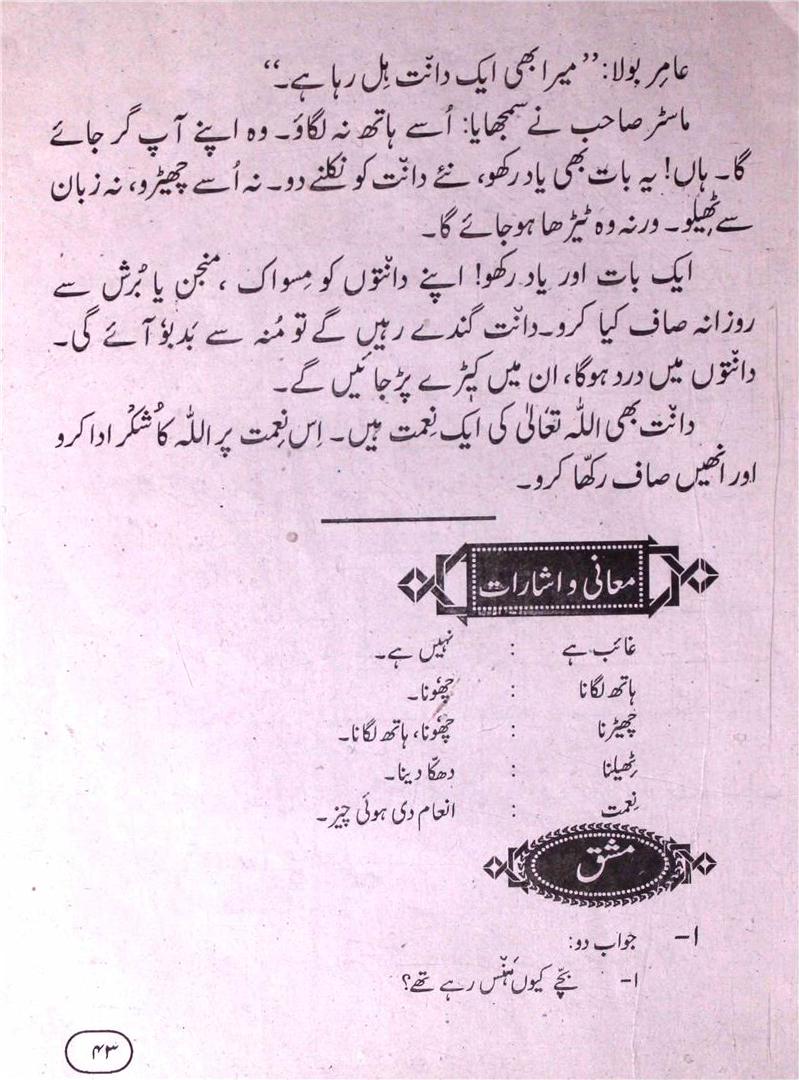 عامِر بولا: ’’میرا بھی ایک دانت ہِل رہا ہے۔‘‘
ماسٹر صاحب نے سمجھایا: اُسے ہاتھ نہ لگاؤ۔ وہ اپنے آپ گر جائے
گا۔ ہاں! یہ بات بھی یاد رکھو، نئے دانت کو نکلنے دو۔ نہ اُسے چھیڑو، نہ زبان
سے ٹھِیلو۔ ورنہ وہ ٹیڑھا ہوجائے گا۔
ایک بات اور یاد رکھو! اپنے دانتوں کو مِسواک ، منجن یا بُرش سے
روزانہ صاف کیا کرو۔ دانت گندے رہیں گے تو مُنہ سے بَدبوٗ آئے گی۔
دانتوں میں درد ہوگا، ان میں کیڑے پڑجائیں گے۔
دانت بھی اللہ تعالیٰ کی ایک نِعمت ہیں۔ اِس نِعمت پر اللہ کا شُکْر ادا کرو
اور انھیں صاف رکھّا کرو۔
معانی و اشارات
غائب ہے : نہیں ہے۔
ہاتھ لگانا : چھوٗنا۔
چھیڑنا : چھوٗنا، ہاتھ لگانا۔
ٹھِیلنا : دھکّا دینا۔
نِعمت : انعام دی ہوئی چیز۔
مشق
۱– جواب دو:
۱- بچّے کیوں ہَنْس رہے تھے؟
۴۳